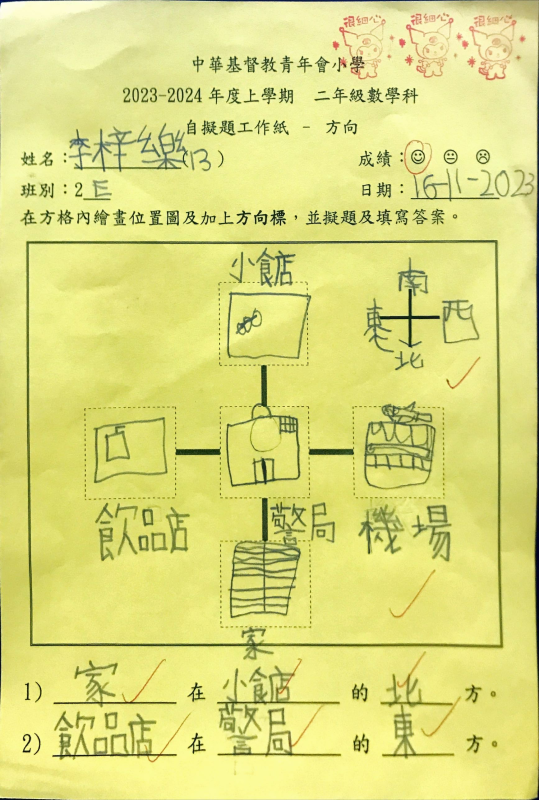 很細心 很細心 很細心
中華基督教青年會小學
2023-2024 年度上學期 二年級數學科
自擬題工作紙 - 方向
姓名：李梓樂(13) 成績：
班別：2E 日期：16-11-2023
在方格內繪畫位置圖及加上方向標，並擬題及填寫答案。
小食店
南
東 西
北
飲品店 警局 機場
家
1) 家 在 小食店 的 北 方。
2) 飲品店 在 警局 的 東 方。